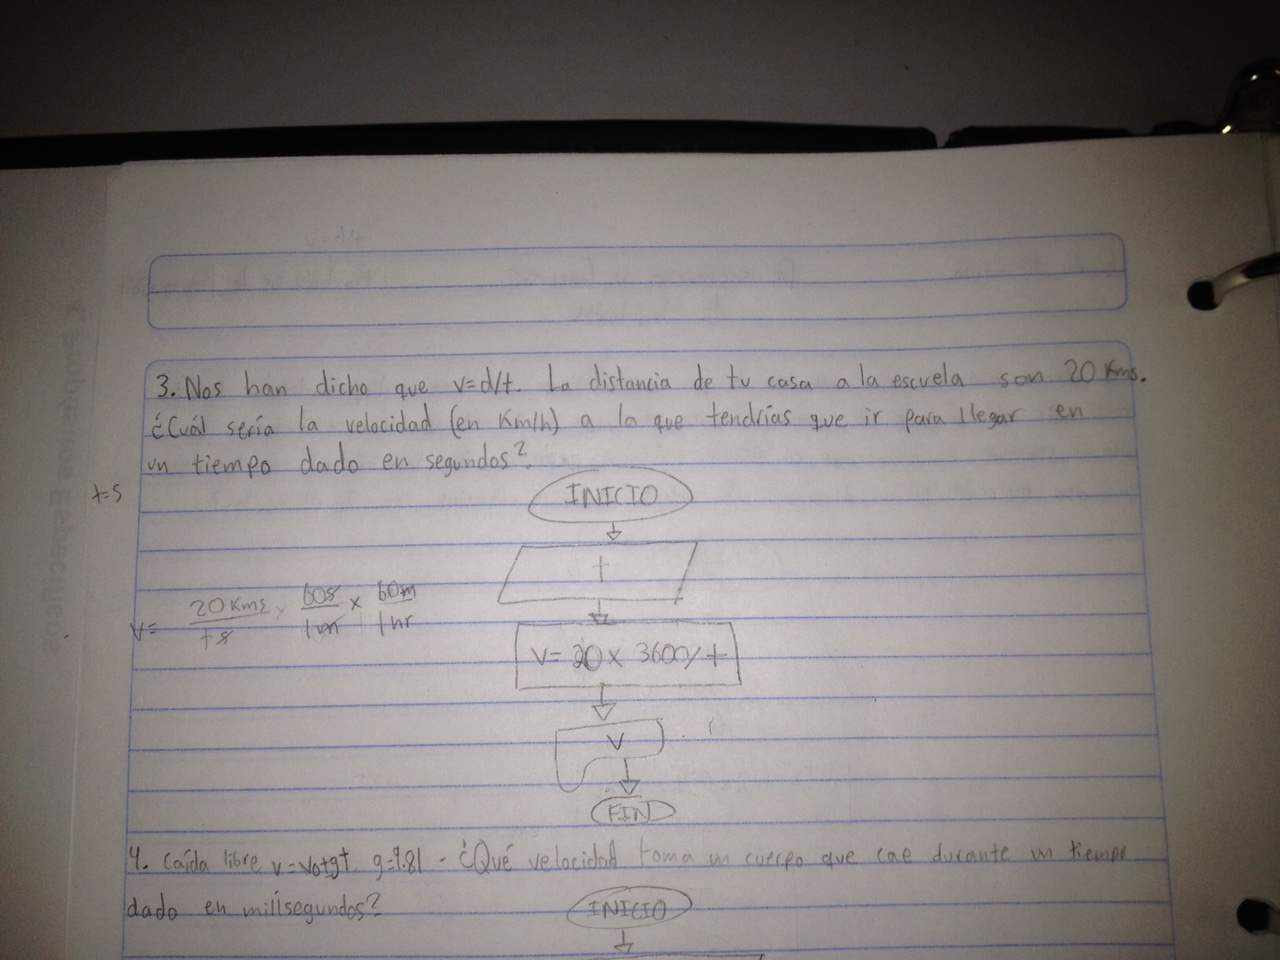 3. Nos han dicho que v=d/t. La distancia de tu casa a la escuela son 20 Kms.
¿Cuál sería la velocidad (en Km/h) a la que tendrías que ir para llegar en
un tiempo dado en segundos?
t=s
INICIO
t
V= 20 Kms / t s x 60s / 1m x 60m / 1hr
V= 20 x 3600/t
V
FIN
4. Caída libre v=vo+gt. g=9.81 - ¿Qué velocidad toma un cuerpo que cae durante un tiempo
dado en milisegundos?
INICIO